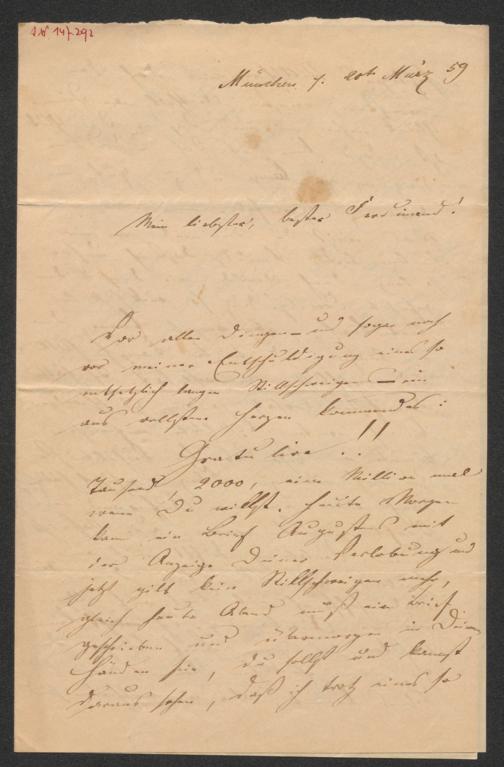 I.N. 147.292
München d. 20t März 59
Mein liebster, bester Ferdinand!
Vor allen Dingen – und sogar noch
vor meiner Entschuldigung eines so
entsetzlich langen Stillschweigens – ein
aus vollstem Herzen kommendes:
Gratulire!!!
Tausend, 2000, eine Million mal
wenn Du willst. Heute Morgen
kam ein Brief Augustens mit
der Anzeige Deiner Verlobung und
jetzt gilt kein Stillschweigen mehr,
gleich heute Abend muß ein Brief
geschrieben und übermorgen in Deinen
Händen sein, Du sollst und kannst
daraus sehen, daß ich trotz eines so